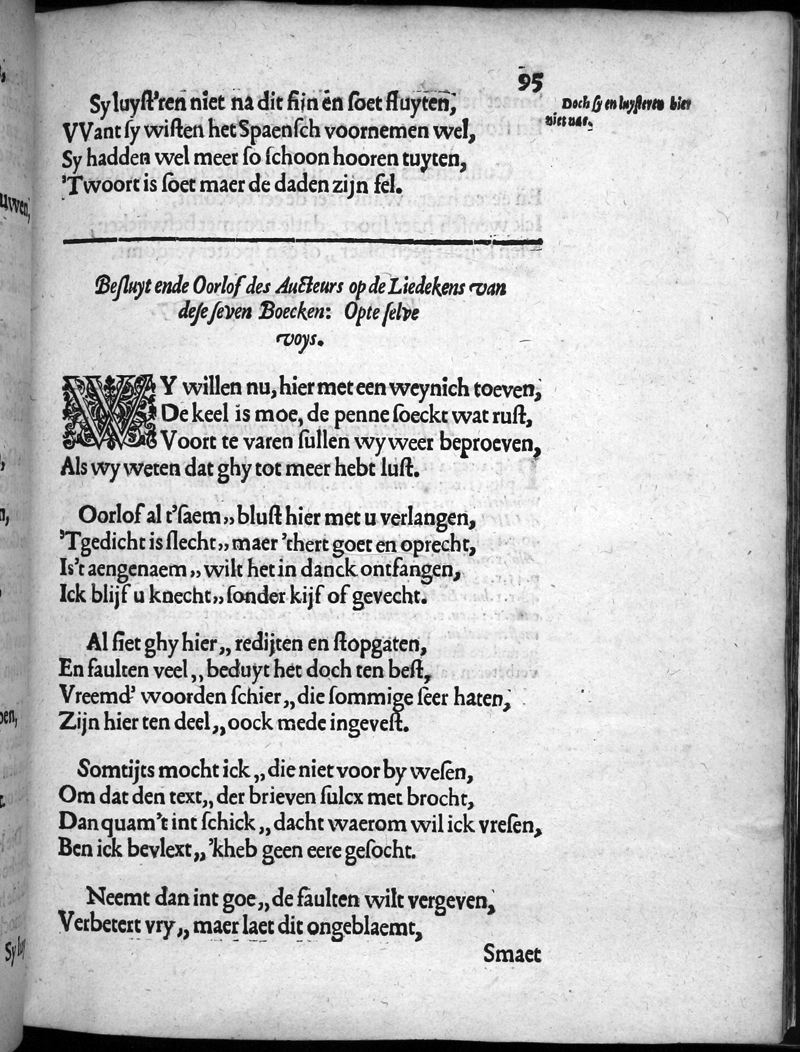 95
Sy luyst'ren niet na dit fijn en soet fluyten,
VVant sy wisten het Spaensch voornemen wel,
Sy hadden wel meer so schoon hooren tuyten,
'Twoort is soet maer de daden zijn fel.
Doch sy en luysteren hier
niet nae.
Besluyt ende Oorlof des Autheurs op de Liedekens van
dese seven Boecken: Opte selve
voys.
WY willen nu, hier met een weynich toeven,
De keel is moe, de penne soeckt wat rust,
Voort te varen sullen wy weer beproeven,
Als wy weten dat ghy tot meer hebt lust.
Oorlof al t'saem,, blust hier met u verlangen,
'Tgedicht is slecht,, maer 'thert goet en oprecht,
Is't aengenaem,, wilt het in danck ontfangen,
Ick blijf u knecht,, sonder kijf of gevecht.
Al siet ghy hier,, redijten en stopgaten,
En faulten veel,, beduyt het doch ten best,
Vreemd' woorden schier,, die sommige seer haten,
Zijn hier ten deel,, oock mede ingevest.
Somtijts mocht ick,, die niet voor by wesen,
Om dat den text,, der brieven sulcx met brocht,
Dan quam't int schick,, dacht waerom wil ick vresen,
Ben ick bevlext,, 'kheb geen eere gesocht.
Neemt dan int goe,, de faulten wilt vergeven,
Verbetert vry,, maer laet dit ongeblaemt,
Smaet